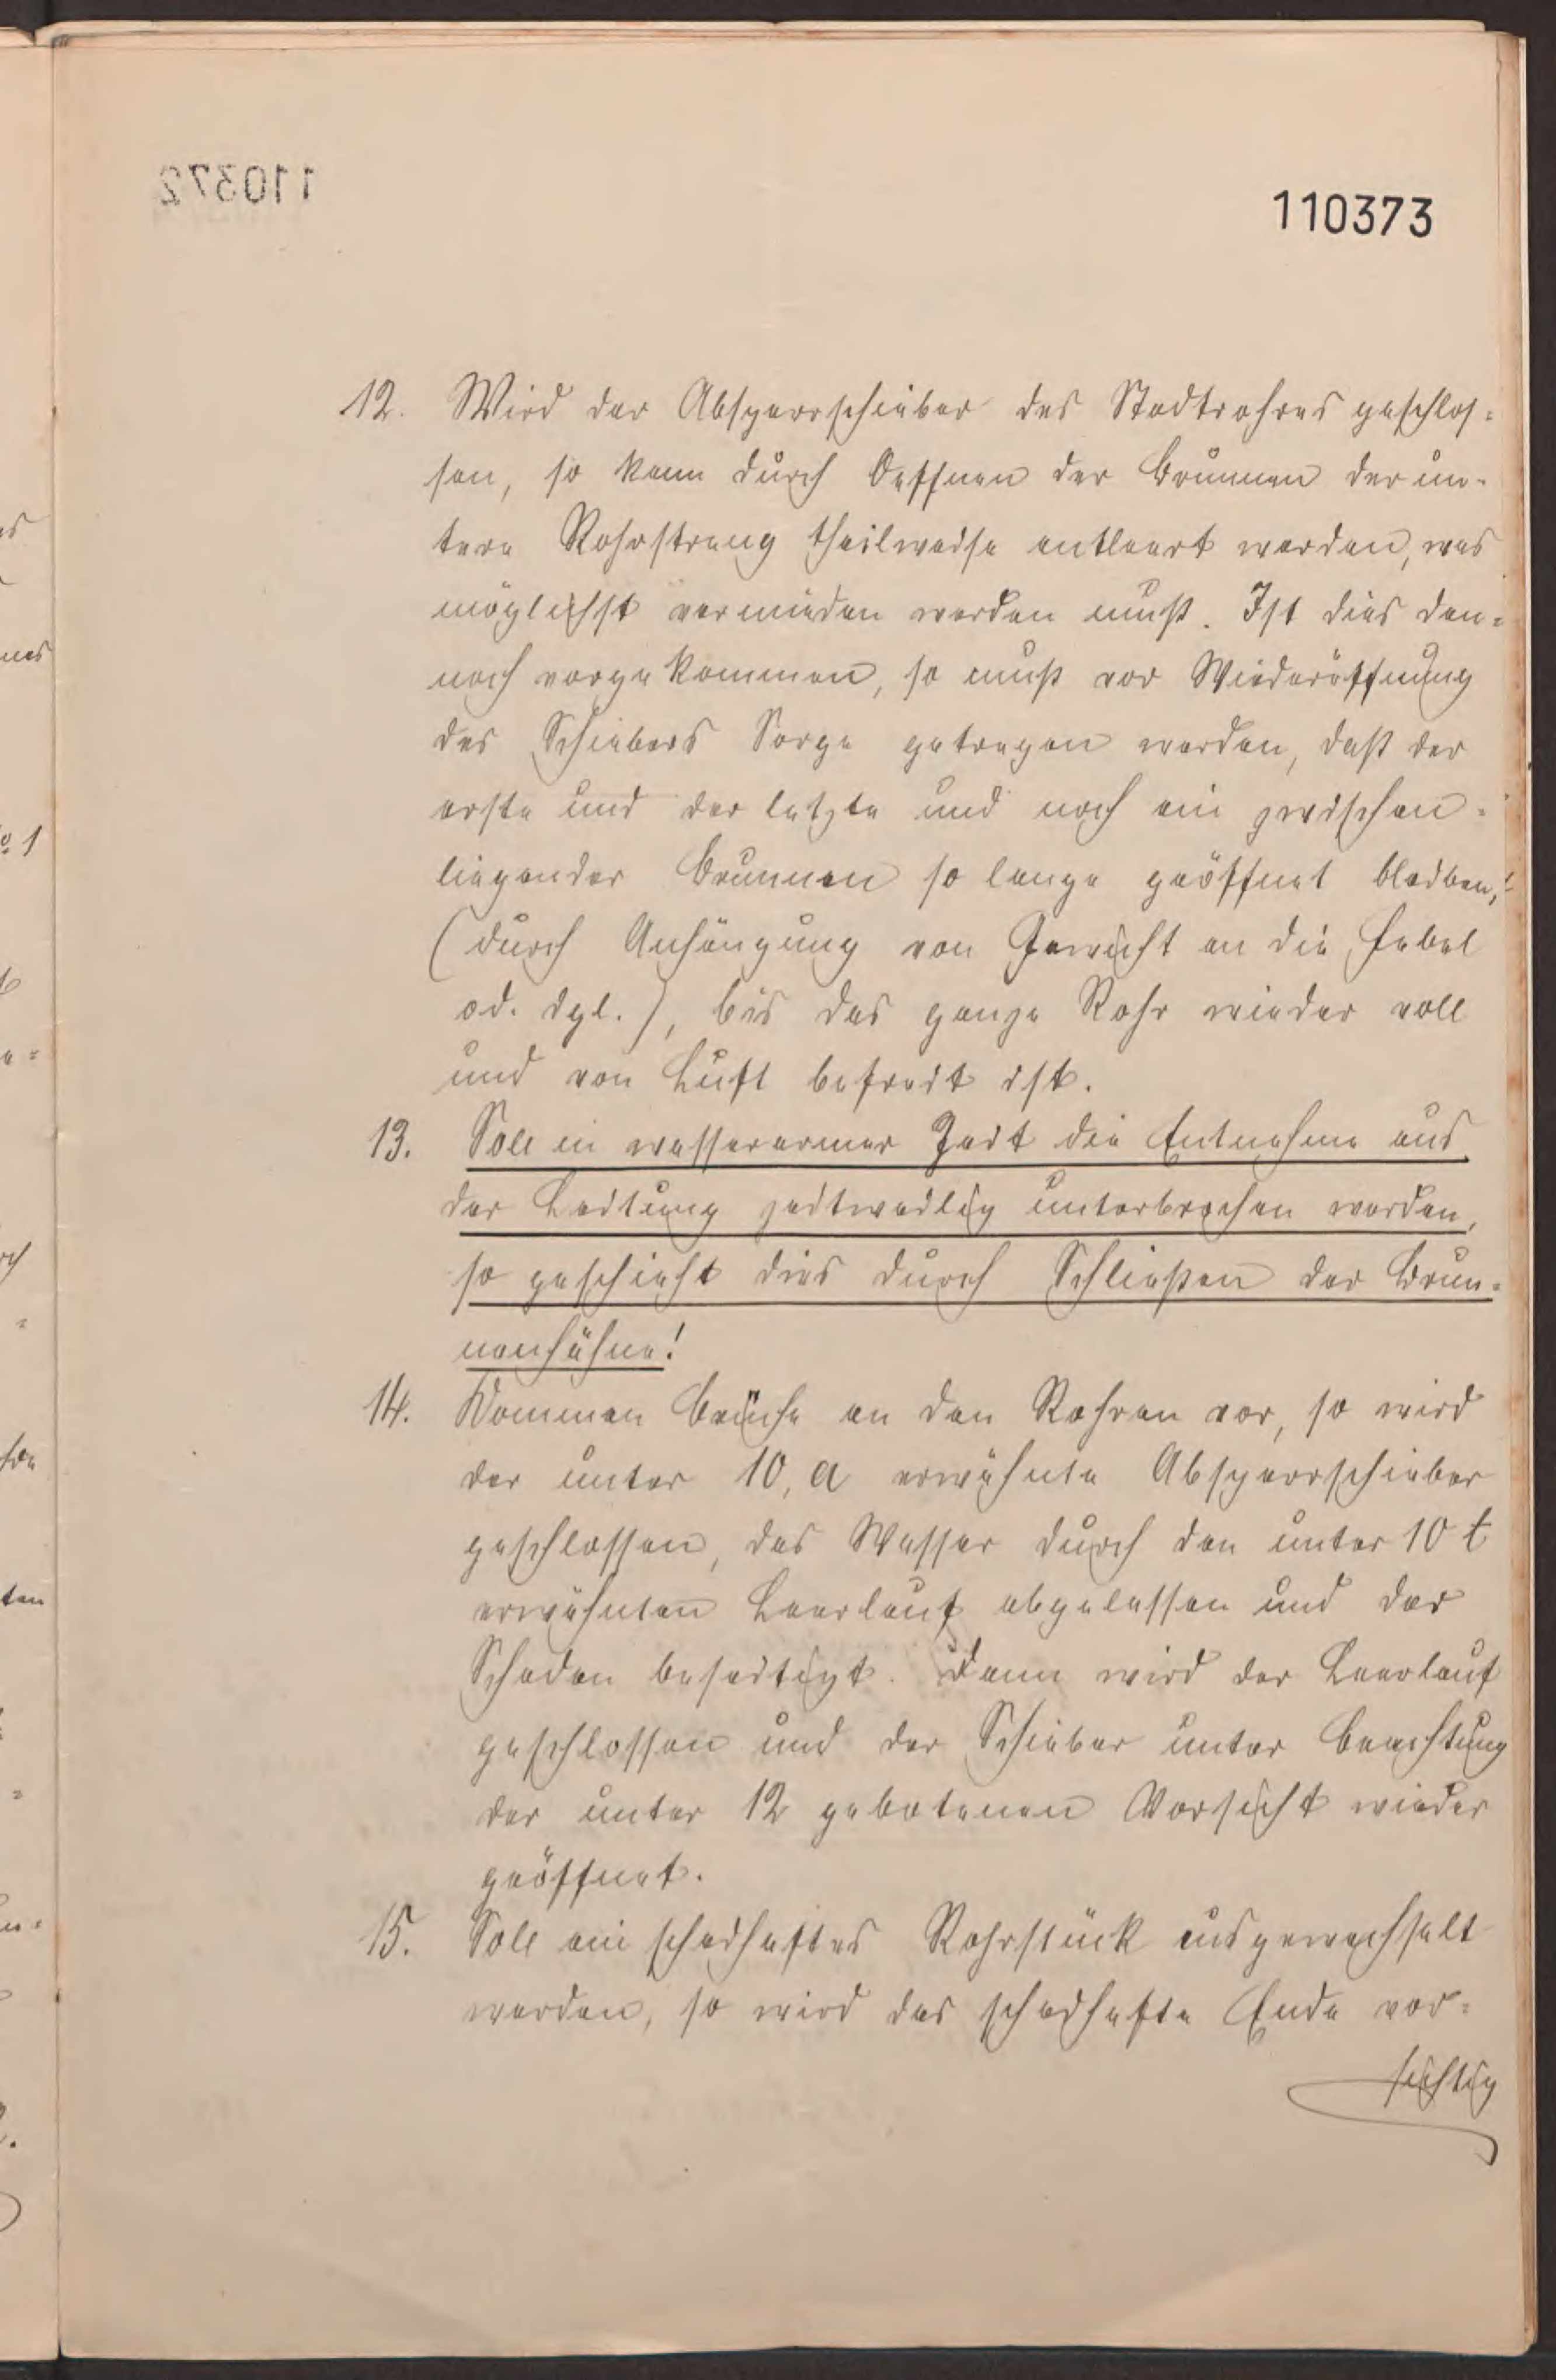 110372
110373
12. Wird der Absperrschieber des Stadtrohres geschlos=
sen, so kann durch Oeffnen der Brunnen der un=
tere Rohrstrang theilweise entleert werden, was
möglichst vermieden werden muß. Ist dies den=
noch vorgekommen, so muß vor Wiederöffnung
des Schiebers Sorge getragen werden, daß der
erste und der letzte und noch ein zwischen=
liegender Brunnen so lange geöffnet bleiben,
(durch Anhängung von Gewicht an die Hebel
od. dgl.), bis das ganze Rohr wieder voll
und von Luft befreit ist.
13. Soll in wasserarmer Zeit die Entnahme aus
der Leitung zeitweilig unterbrochen werden,
so geschieht dies durch Schließen der Brun=
nenhähne!
14. Kommen Brüche an den Rohren vor, so wird
der unter 10, a erwähnte Absperrschieber
geschlossen, das Wasser durch den unter 10 t
erwähnten Leerlauf abgelassen und der
Schaden beseitigt. Dann wird der Leerlauf
geschlossen und der Schieber unter Beachtung
der unter 12 gebotenen Vorsicht wieder
geöffnet.
15. Soll ein schadhaftes Rohrstück ausgewechselt
werden, so wird das schadhafte Ende vor=
sichtig